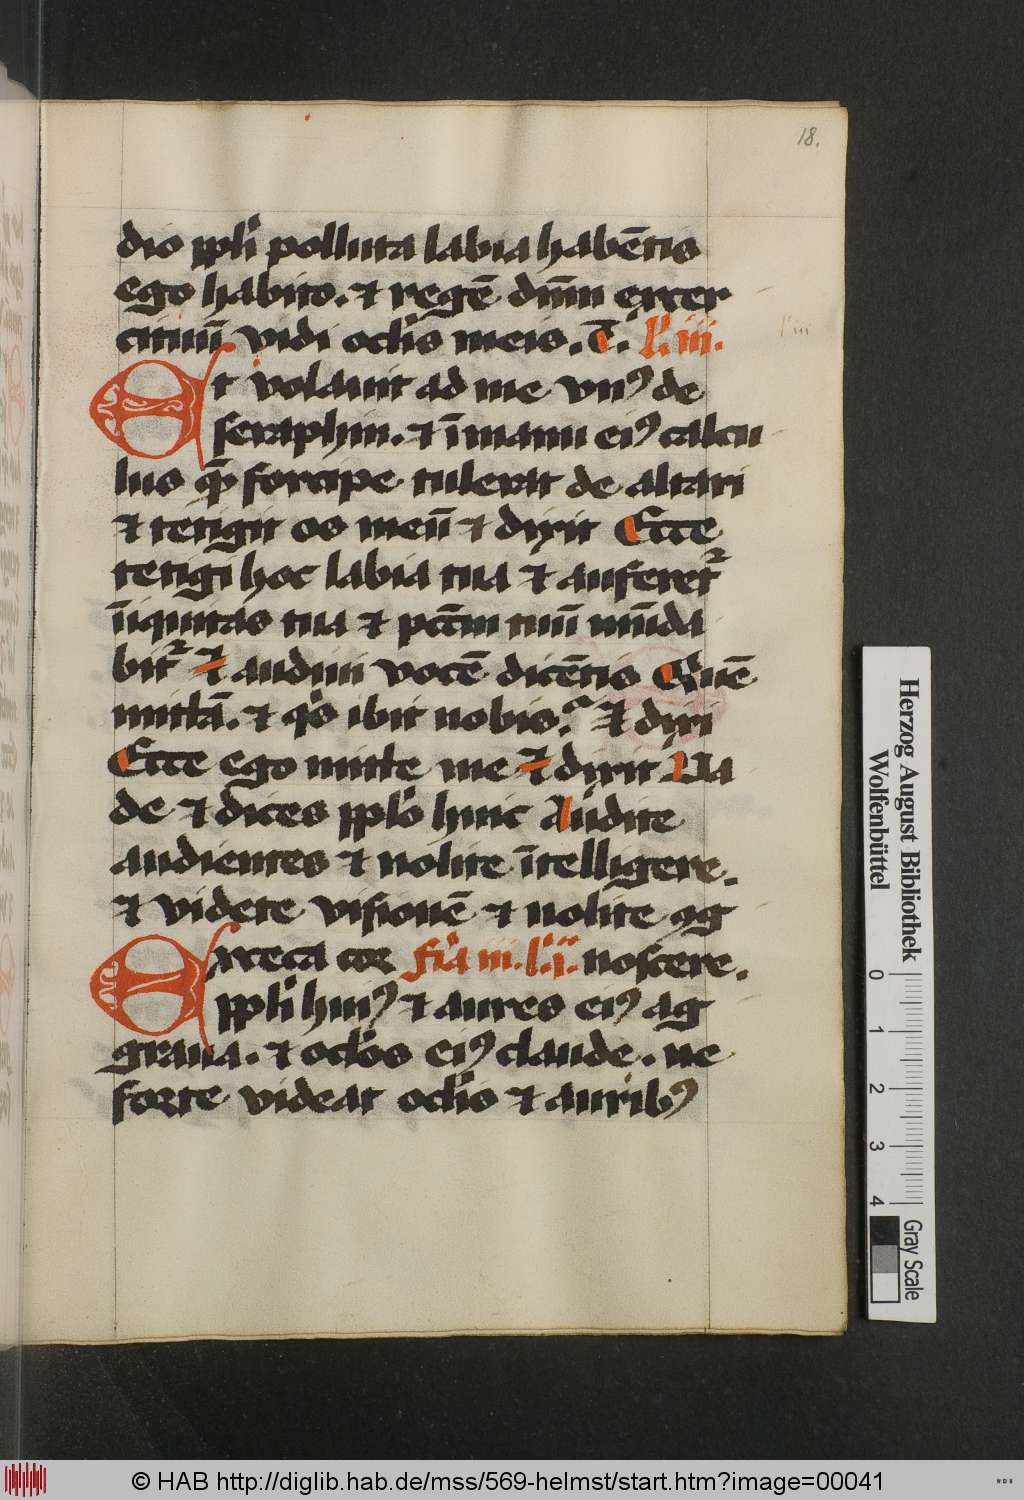 18.
dio ppl'i polluta labia habētis
ego habito. ⁊ regē dn̄m exer
cituū vidi ocl'is meis. T. l'. iii.
l' iii
Et volauit ad me vnꝰ de
seraphin. ⁊ ī manu eiꝰ calcu
lus qē forcipe tulerat de altari
⁊ tetigit os meū ⁊ dixit Ecce
tetigi hoc labia tua ⁊ auferet᷑
īiquitas tua ⁊ pctm̄ tuū mūda
bit᷑ ⁊ audiui vocē dicētis Quē
mittā. ⁊ qͥs ibit nobis? ⁊ dixi
Ecce ego mitte me ⁊ dixit Va
de ⁊ dices pplo huic Audite
audientes ⁊ nolite ītelligere.
⁊ videte visionē ⁊ nolite ꝯg
noscere.
fr̄ia iii. l'. i.
Exceca cor
ppl'i huiꝰ ⁊ aures eiꝰ ag
graua. ⁊ ocl'os eiꝰ claude. ne
forte videat ocl'is ⁊ auribꝰ
Herzog August Bibliothek
Wolfenbüttel
0 1 2 3 4
Gray Scale
© HAB http://diglib.hab.de/mss/569-helmst/start.htm?image=00041